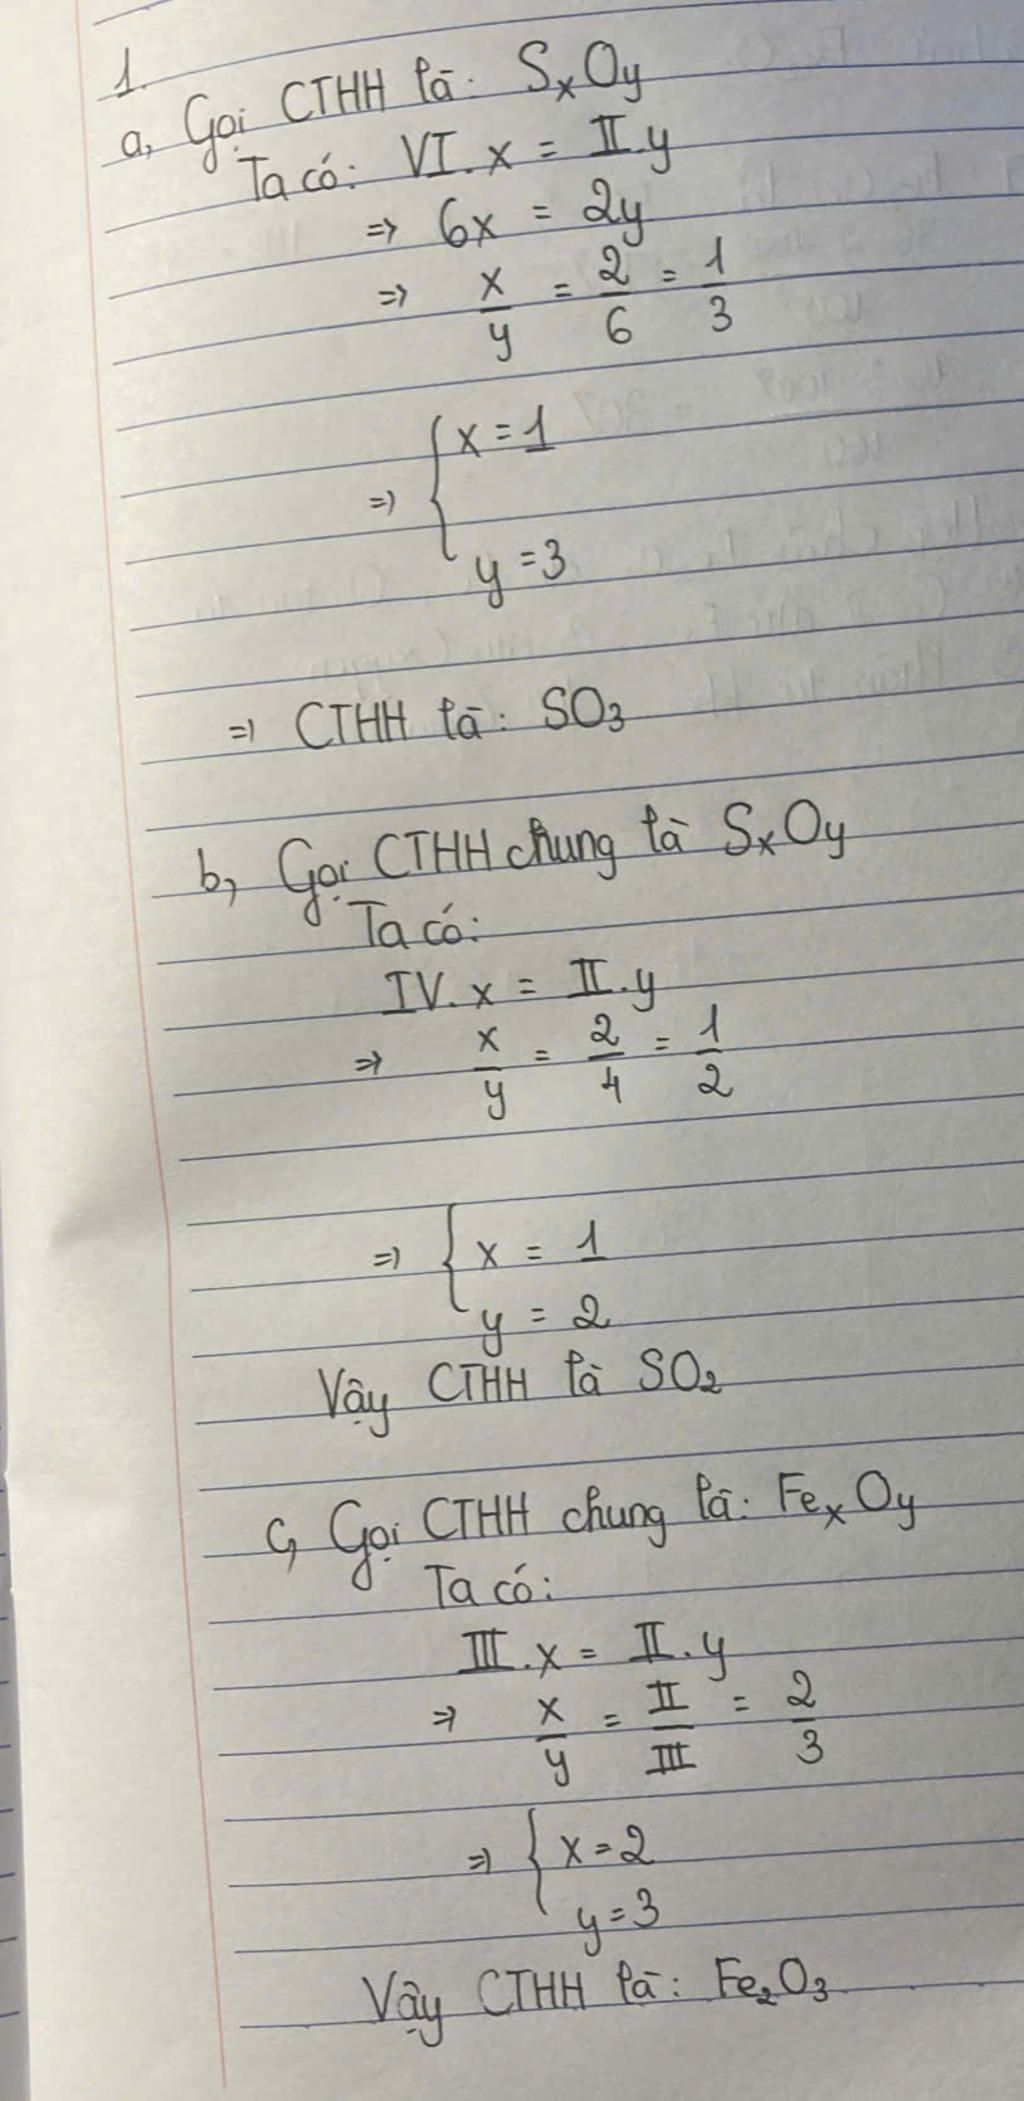 1.
a, Gọi CTHH là: SₓOy
Ta có: VI.x = II.y
=> 6x = 2y
=> x/y = 2/6 = 1/3
=> { x = 1
y = 3
=> CTHH là: SO₃
b, Gọi CTHH chung là SₓOy
Ta có:
IV.x = II.y
=> x/y = 2/4 = 1/2
=> { x = 1
y = 2
Vậy CTHH là SO₂
c, Gọi CTHH chung là: FeₓOy
Ta có:
III.x = II.y
=> x/y = II/III = 2/3
=> { x = 2
y = 3
Vậy CTHH là: Fe₂O₃